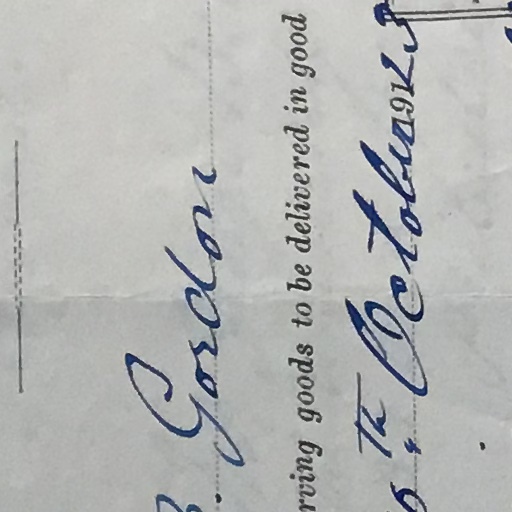 . Gordon
rving goods to be delivered in good
th October 1923